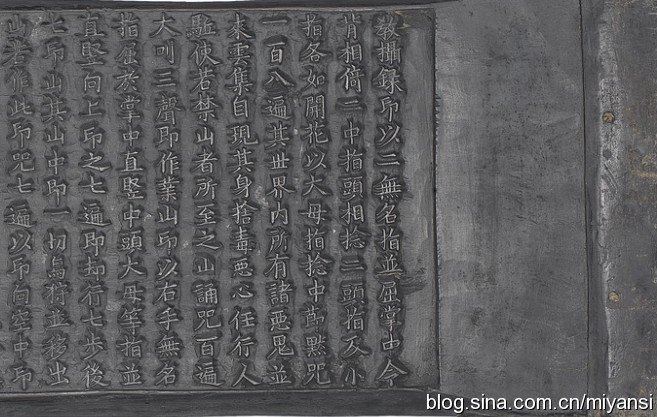 教攝錄印以二無名指並屈掌中令
背相倚二中指頭相捻二頭指及小
指各如開花以大母指捻中節默咒
一百八遍其世界內所有諸惡鬼並
来雲集自現其身捨毒惡心任行人
駈使若禁山者所至之山誦咒百遍
大叫三聲即作業山印以右手無名
指屈於掌中直竪中頭大母等指並
直竪向上印之七遍即却行七步後
七印山其山中即一切鳥狩並移出
山若作此印咒七遍以印向空中印
blog.sina.com.cn/miyansi